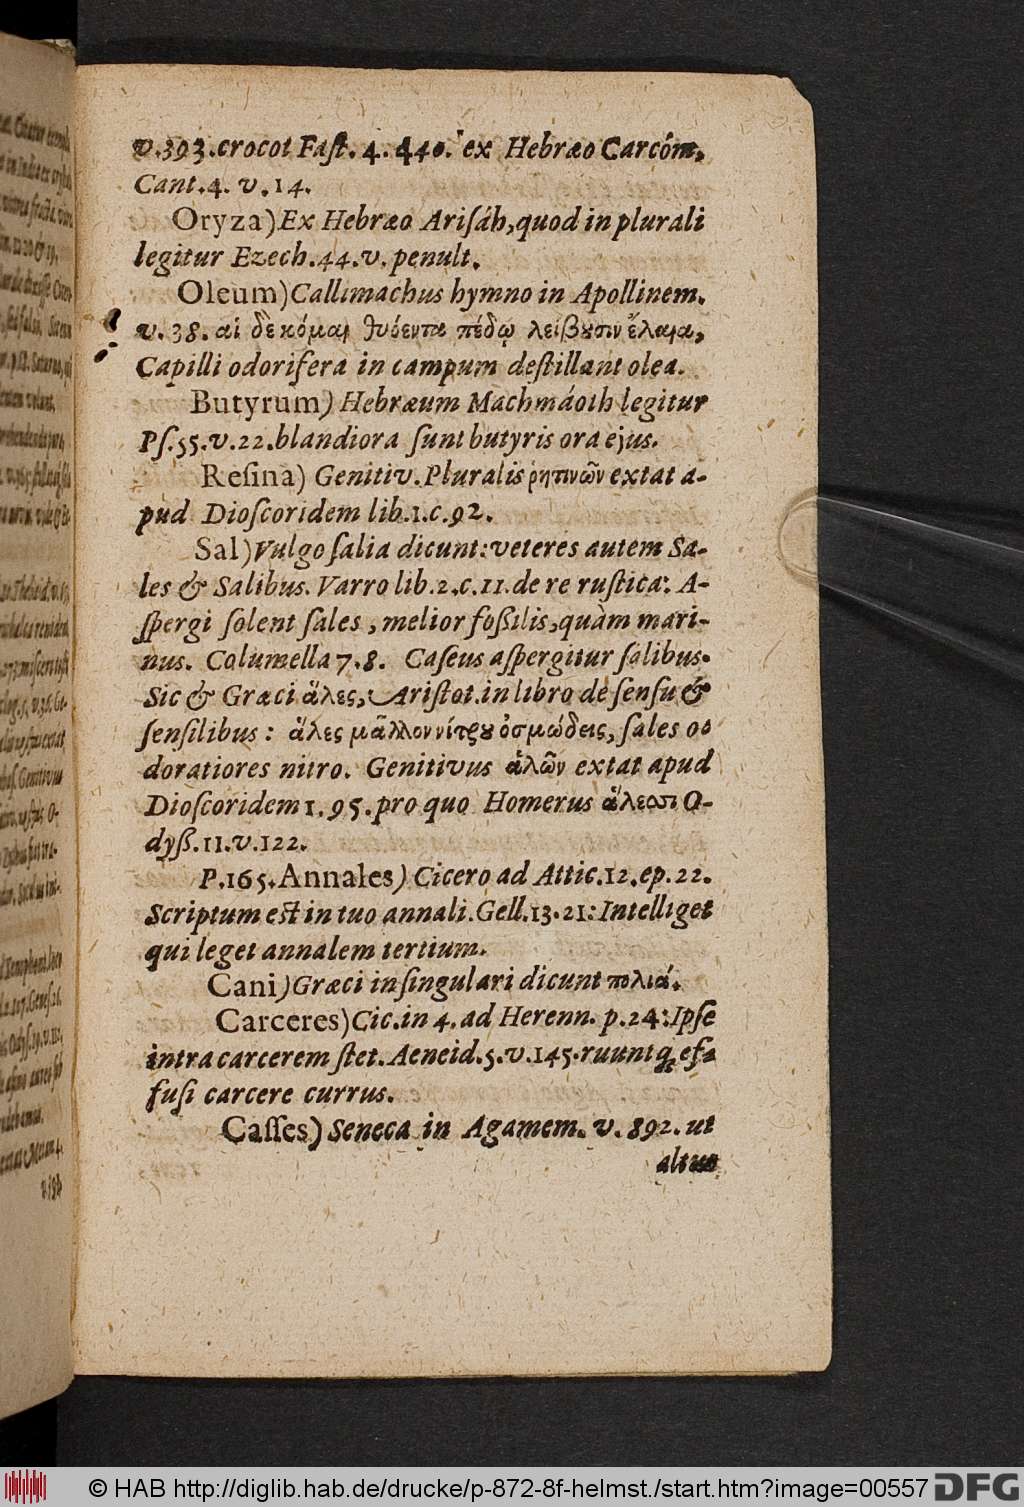 v.393.crocot Faſt. 4. 440. ex Hebræo Carcóm,
Cant.4. v.14.
Oryza) Ex Hebræo Ariſáh, quod in plurali
legitur Ezech.44.v. penult.
Oleum) Callimachus hymno in Apollinem.
v.38. αἱ δὲ κόμαι θυόεντα πέδῳ λείβουσιν ἔλαια,
Capilli odorifera in campum deſtillant olea.
Butyrum) Hebræum Machmáoth legitur
Pſ.55.v.22.blandiora ſunt butyris ora ejus.
Reſina) Genitiv. Pluralis ῥητινῶν extat a-
pud Dioſcoridem lib.1.c.92.
Sal) Vulgo ſalia dicunt: veteres autem Sa-
les & Salibus. Varro lib.2.c.11.de re ruſtica: A-
ſpergi ſolent ſales, melior foßilis, quàm mari-
nus. Columella 7.8. Caſeus aſpergitur ſalibus.
Sic & Græci ἅλες, Ariſtot. in libro de ſenſu &
ſenſilibus: ἅλες μᾶλλον νίτρου ὀσμώδεις, ſales o-
doratiores nitro. Genitivus ἁλῶν extat apud
Dioſcoridem 1.95. pro quo Homerus ἅλεσσι O-
dyß.11.v.122.
P.165. Annales) Cicero ad Attic.12.ep.22.
Scriptum eſt in tuo annali. Gell.13.21: Intelliget
qui leget annalem tertium.
Cani) Græci in ſingulari dicunt πολιά.
Carceres) Cic. in 4. ad Herenn. p.24: Ipſe
intra carcerem ſtet. Aeneid.5.v.145.ruuntq; ef-
fuſi carcere currus.
Caſſes) Seneca in Agamem. v. 892. ut
altus
© HAB http://diglib.hab.de/drucke/p-872-8f-helmst./start.htm?image=00557 DFG